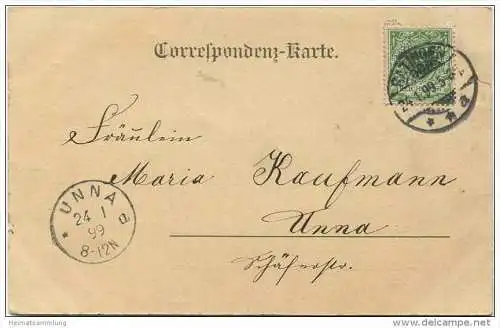 Correspondenz-Karte.
24.1.99.
Fräulein
Maria Kaufmann
Unna
Schäferstr.
UNNA
24 1
99
8-12N
* a
Heimatsammlung
www.delcampe.net